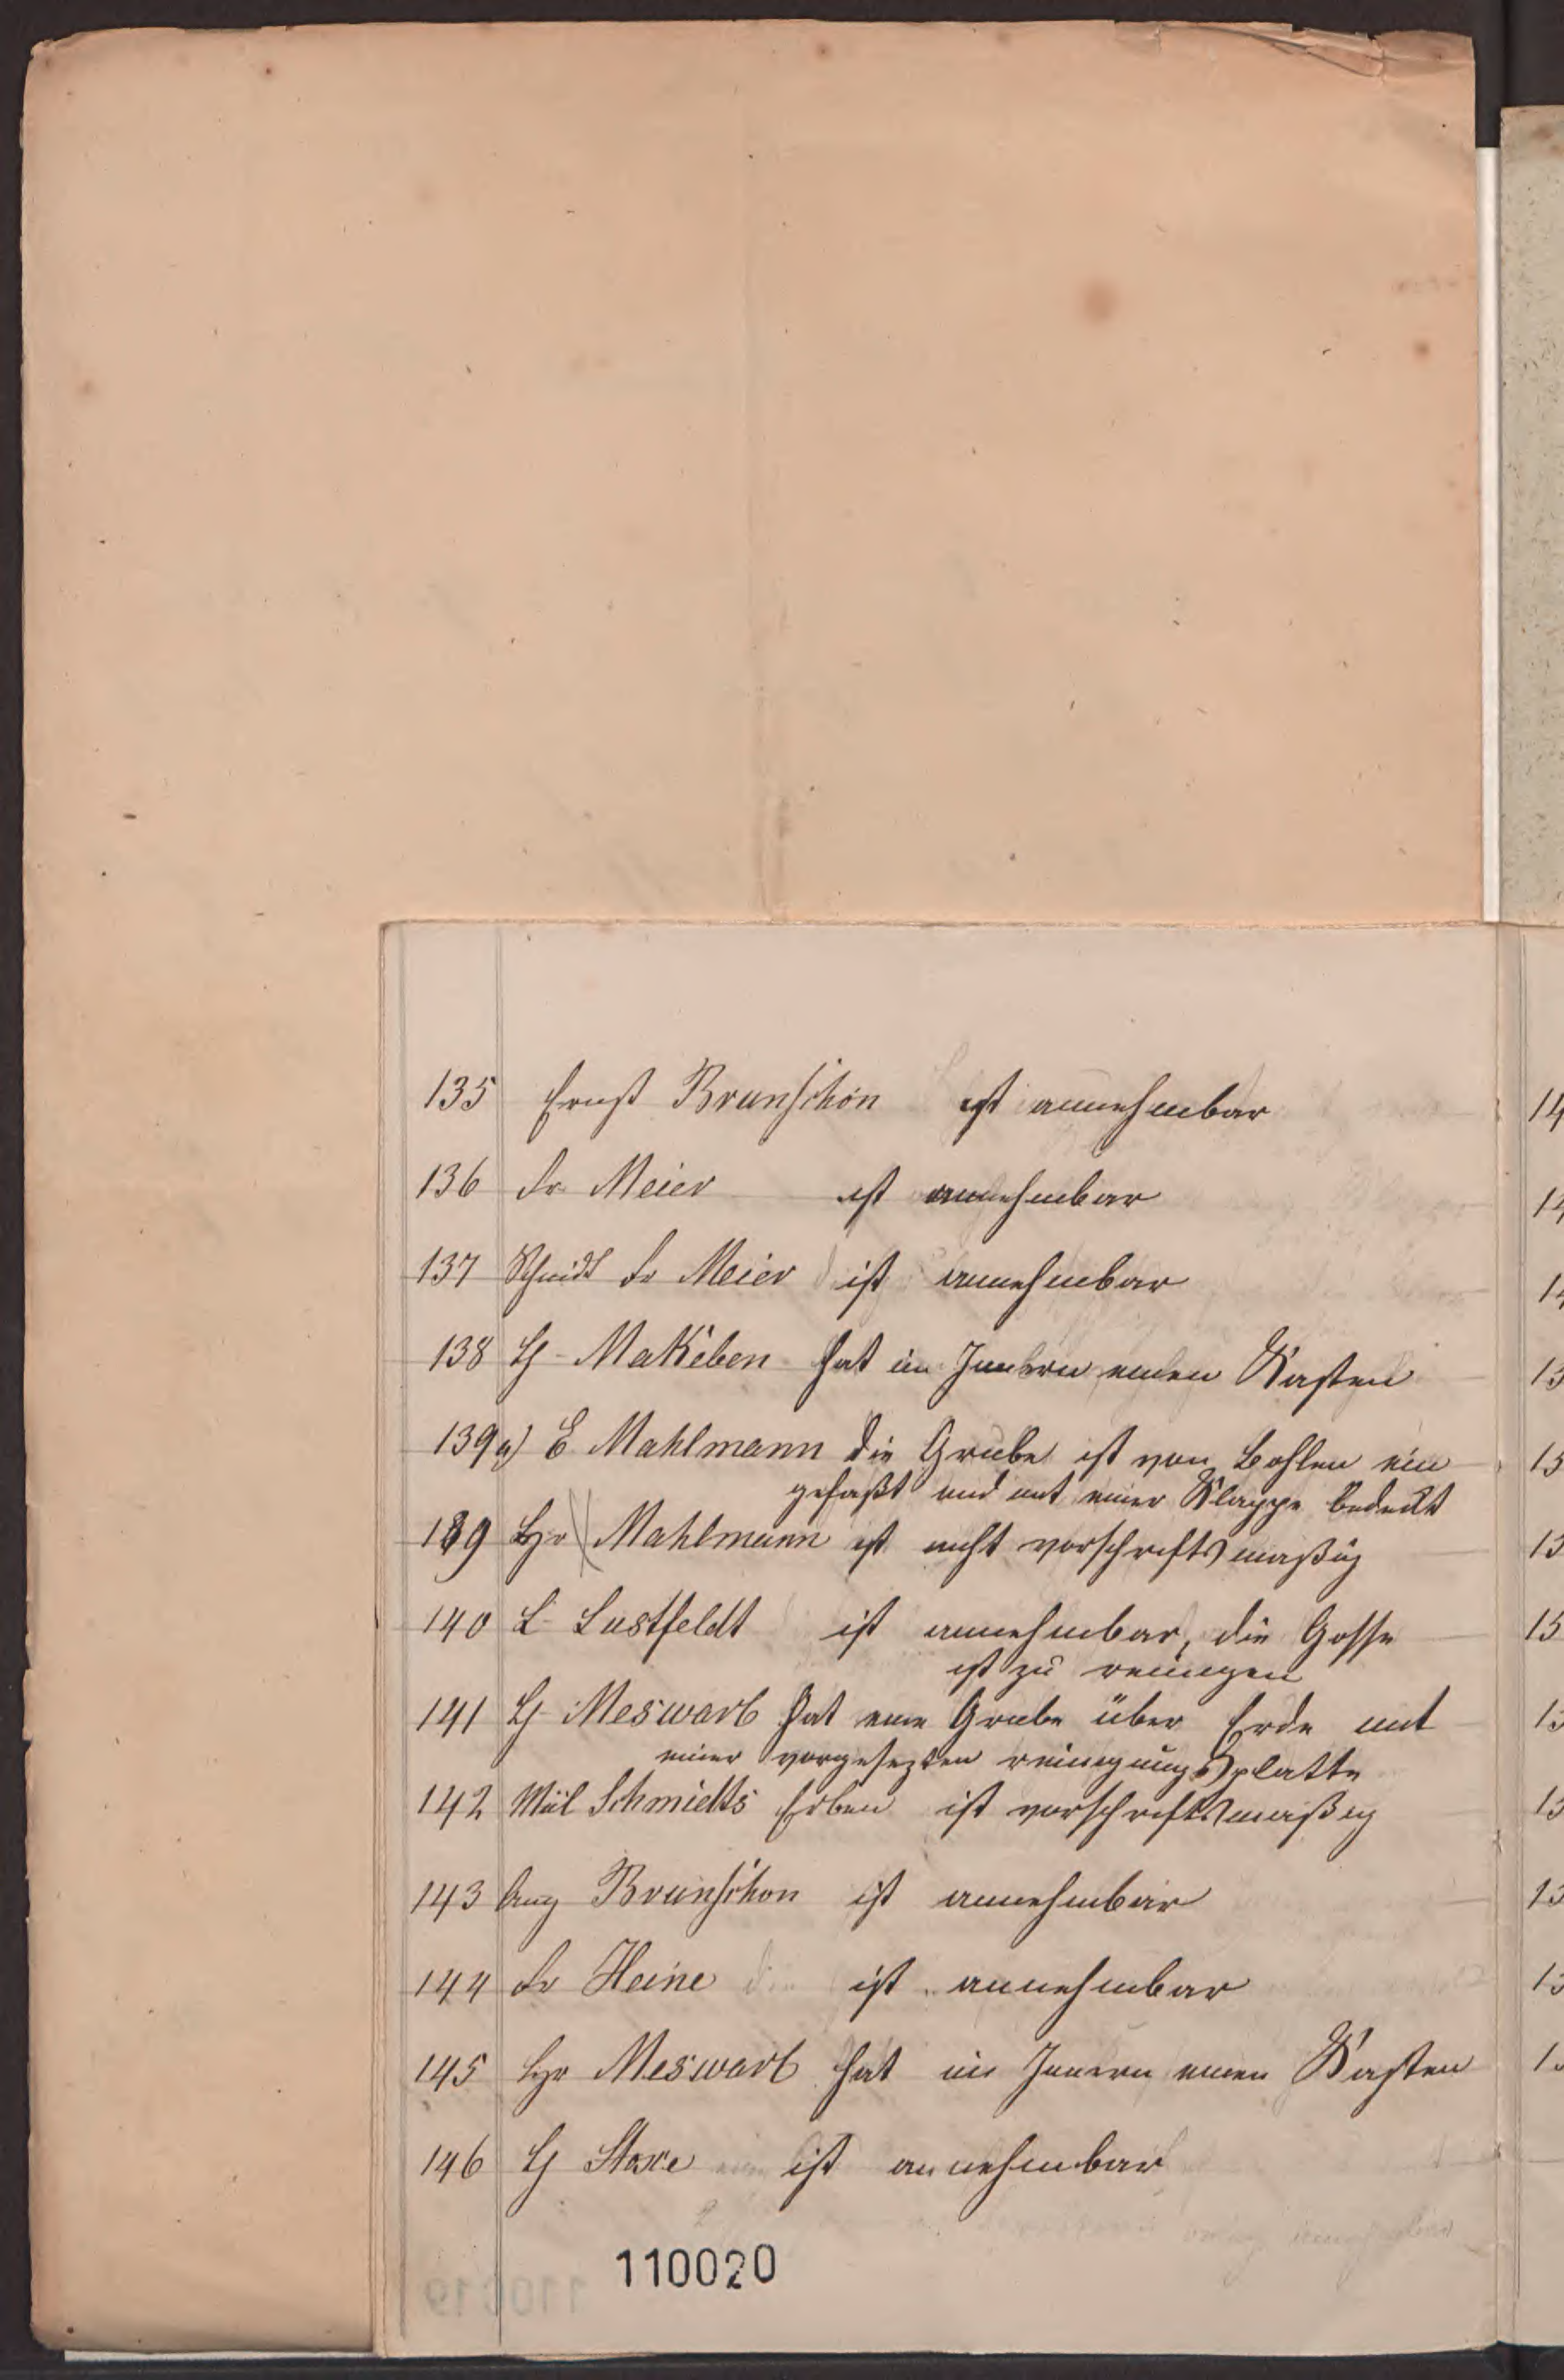 135 Ernst Brunschön ist annehmbar
136 Fr Meier ist annehmbar
137 Schmidt Fr Meier ist annehmbar
138 H Makeben hat im Innern einen Kasten
139 a) E Mahlmann die Grube ist von Bohlen ein
gefaßt und mit einer Klappe bedeckt
139 Hr Mahlmann ist nicht vorschriftsmaßig
140 L Lustfeldt ist annehmbar, die Gosse
ist zu reinigen
141 H Meswarb hat eine Grube über Erde mit
einer vorgesezten reinigungsplatte
142 Schmidts Erben ist vorschriftsmaßig
143 Aug Brunschon ist annehmbar
144 Fr Heine ist annehmbar
145 Hr Meswarb hat im Innern einen Kasten
146 H ist annehmbar
110020